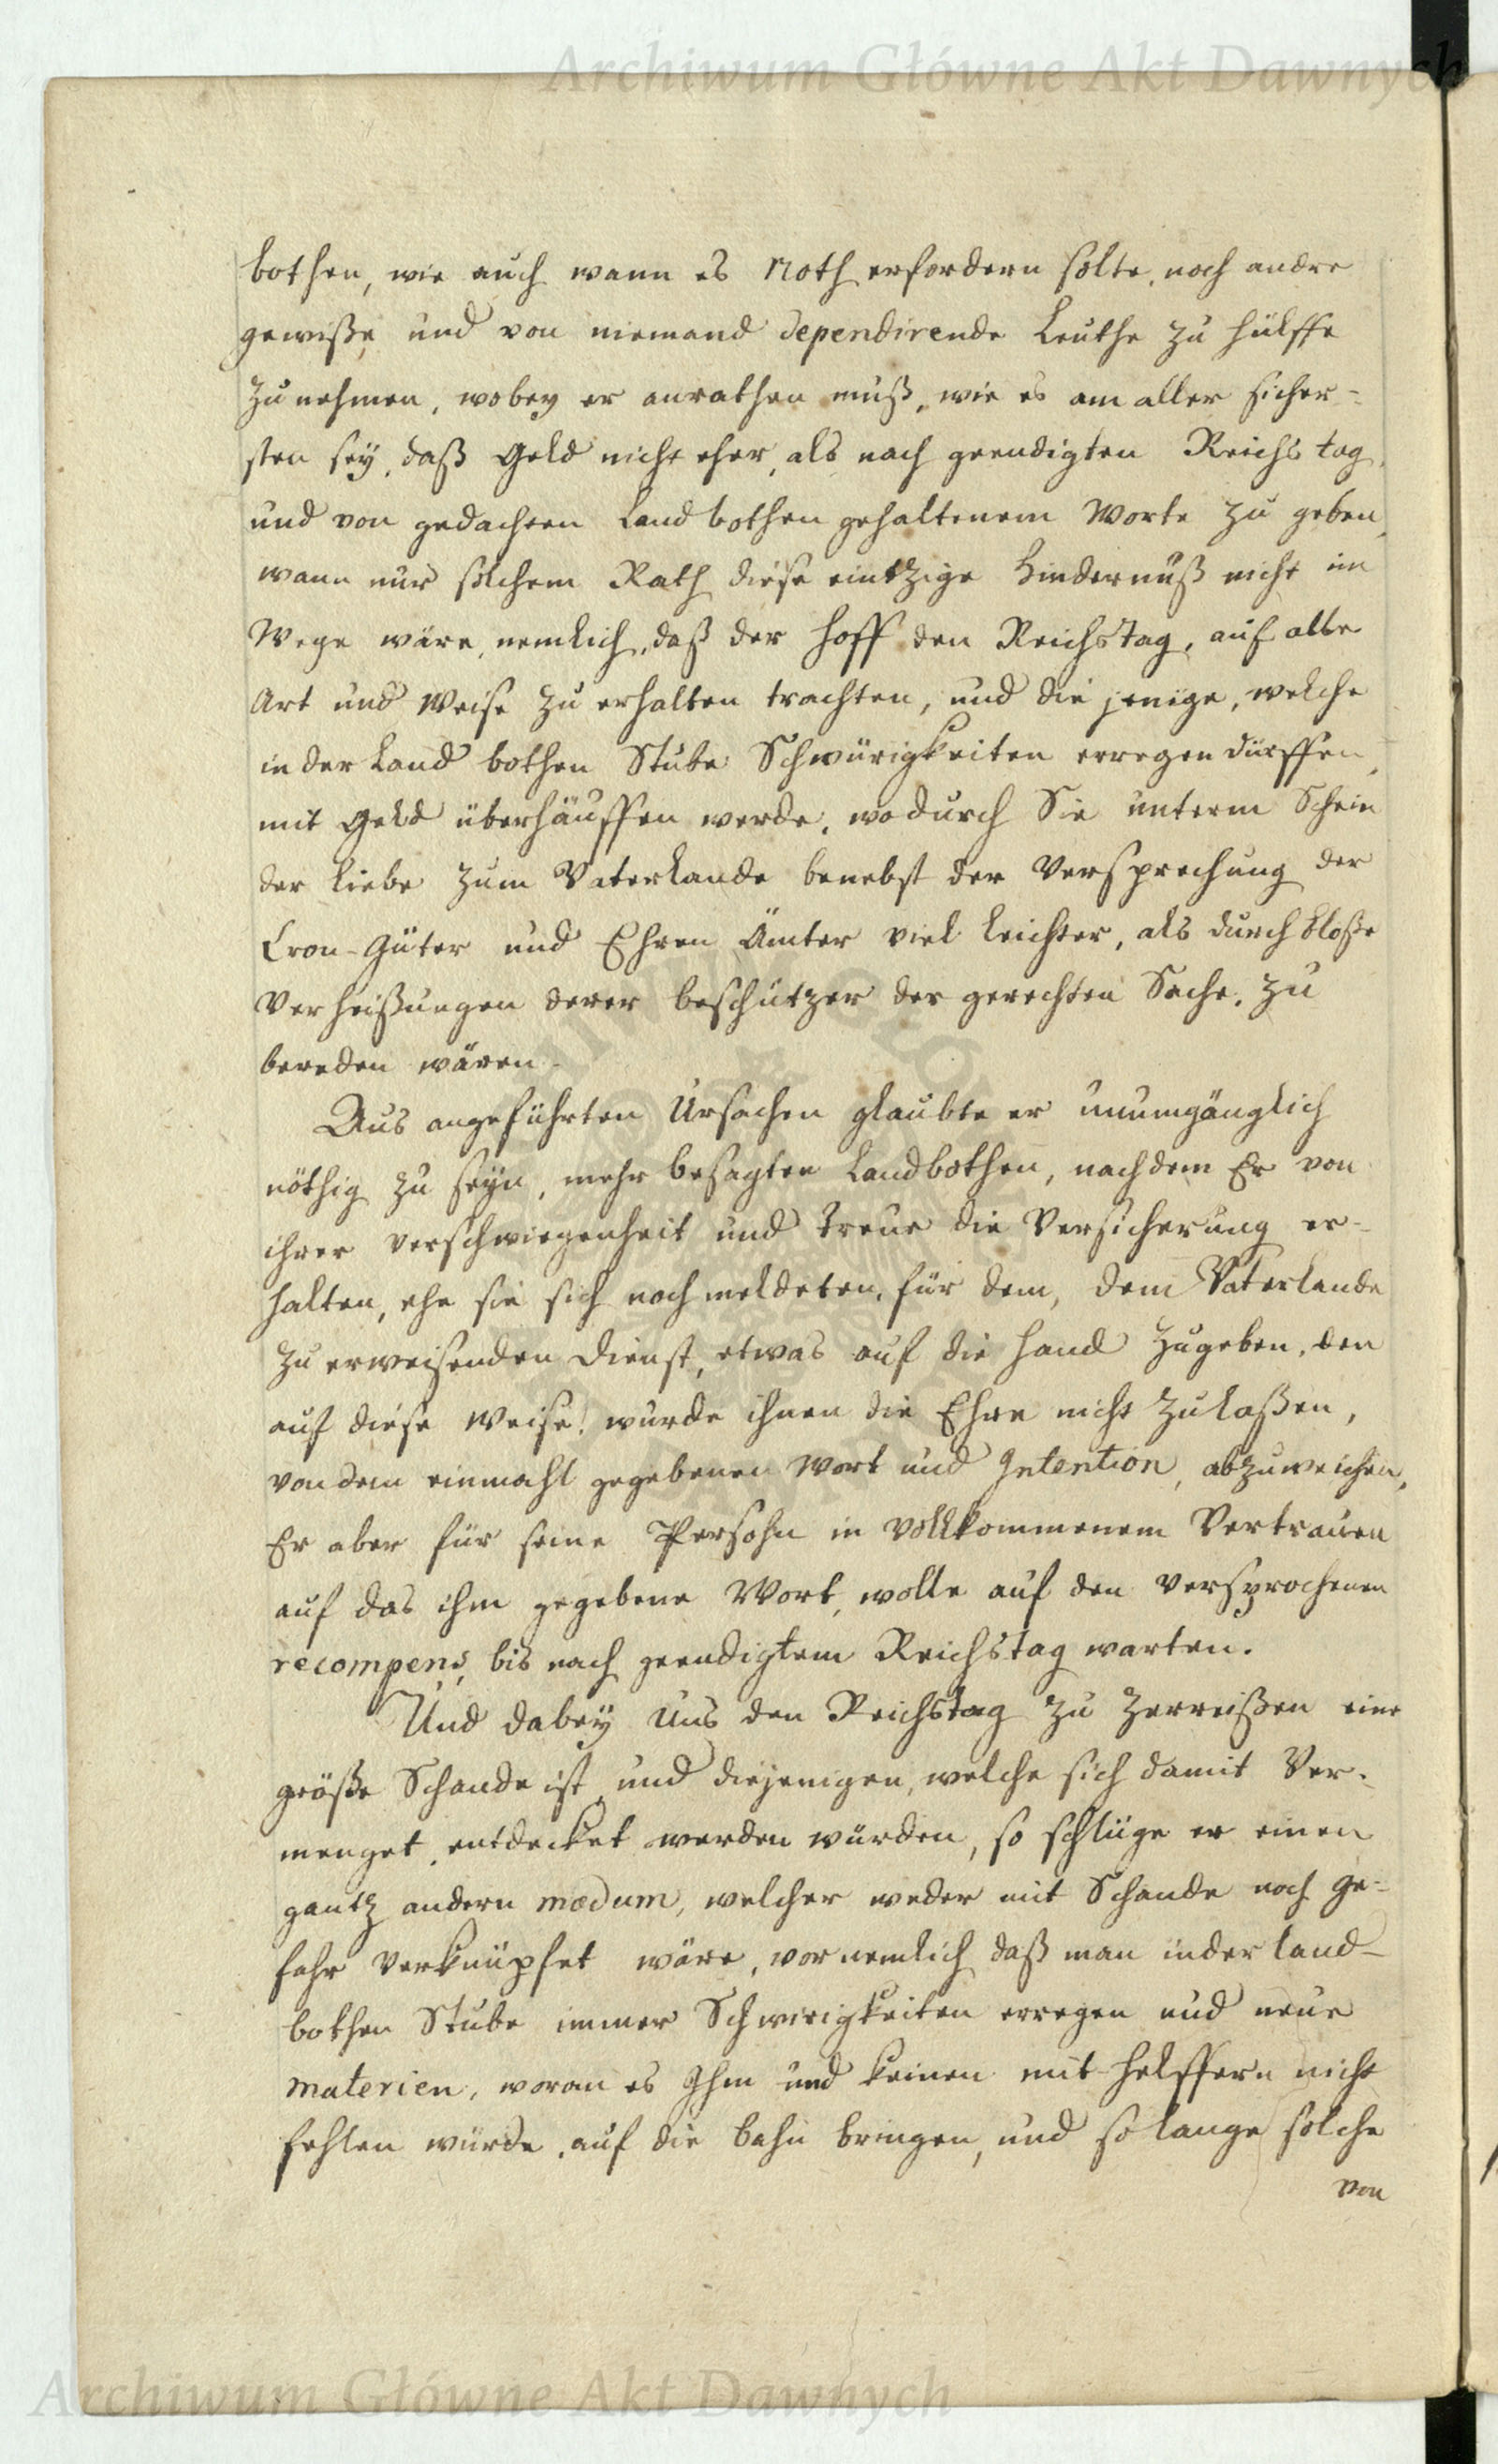 Archiwum Główne Akt Dawnych
bothen, wie auch wann es Noth erfordern solte, noch andre
gewiße, und von niemand dependirende Leuthe zu hülffe
zu nehmen, wobey er anrathen muß, wie es am aller sicher-
sten seÿ, daß Geld nicht eher, als nach geendigten Reichs tag,
und von gedachten Landbothen gehaltenem Worte zu geben,
wann nur solchem Rath diese eintzige Hindernuß nicht im
Wege wäre, nemlich, daß der Hoff den Reichstag, auf alle
Art und Weise zu erhalten trachten, und die jenige, welche
in der Land bothen Stube Schwürigkeiten erregen dürffen,
mit Geld überhäuffen werde, wodurch Sie unterm Schein
der Liebe zum Vaterlande benebst der Versprechung der
Cron-Güter und Ehren Ämter viel leichter, als durch bloße
Verheißungen derer beschützer der gerechten Sache, zu
bereden wären.
Aus angeführten Ursachen glaubte er unumgänglich
nöthig zu seÿn, mehr besagten Landbothen, nachdem Er von
ihrer Verschwiegenheit und Treue die Versicherung er-
halten, ehe sie sich noch meldeten, für dem, dem Vaterlande
zu erweisenden Dienst, etwas auf die Hand zugeben, den
auf diese Weise! wurde ihnen die Ehre nicht zulaßen,
von dem einmahl gegebenen Wort und Intention, abzuweichen,
Er aber für seine Persohn in vollkommenem Vertrauen
auf das ihm gegebene Wort, wolle auf den versprochenen
recompens, bis nach geendigtem Reichstag warten.
Und dabeÿ uns den Reichstag zu zerreißen eine
größe Schande ist, und diejenigen, welche sich damit Ver-
menget, entdecket werden würden, so schlüge er einen
gantz andern modum, welcher weder mit Schande noch Ge-
fahr verknüpfet wäre, vor nemlich daß man in der Land-
bothen Stube immer Schwirigkeiten erregen und neue
materien, woran es Ihm und keinen mit helffern nicht
fehlen würde, auf die bahn bringen, und so lange solche
von
Archiwum Główne Akt Dawnych